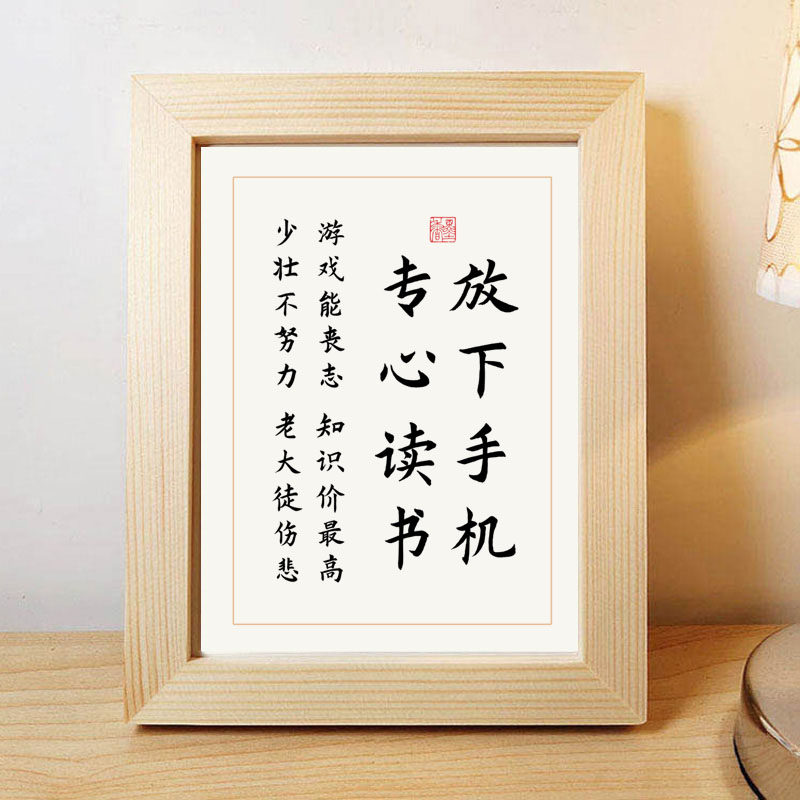 放下手机
专心读书
游戏能丧志 知识价最高
少壮不努力 老大徒伤悲